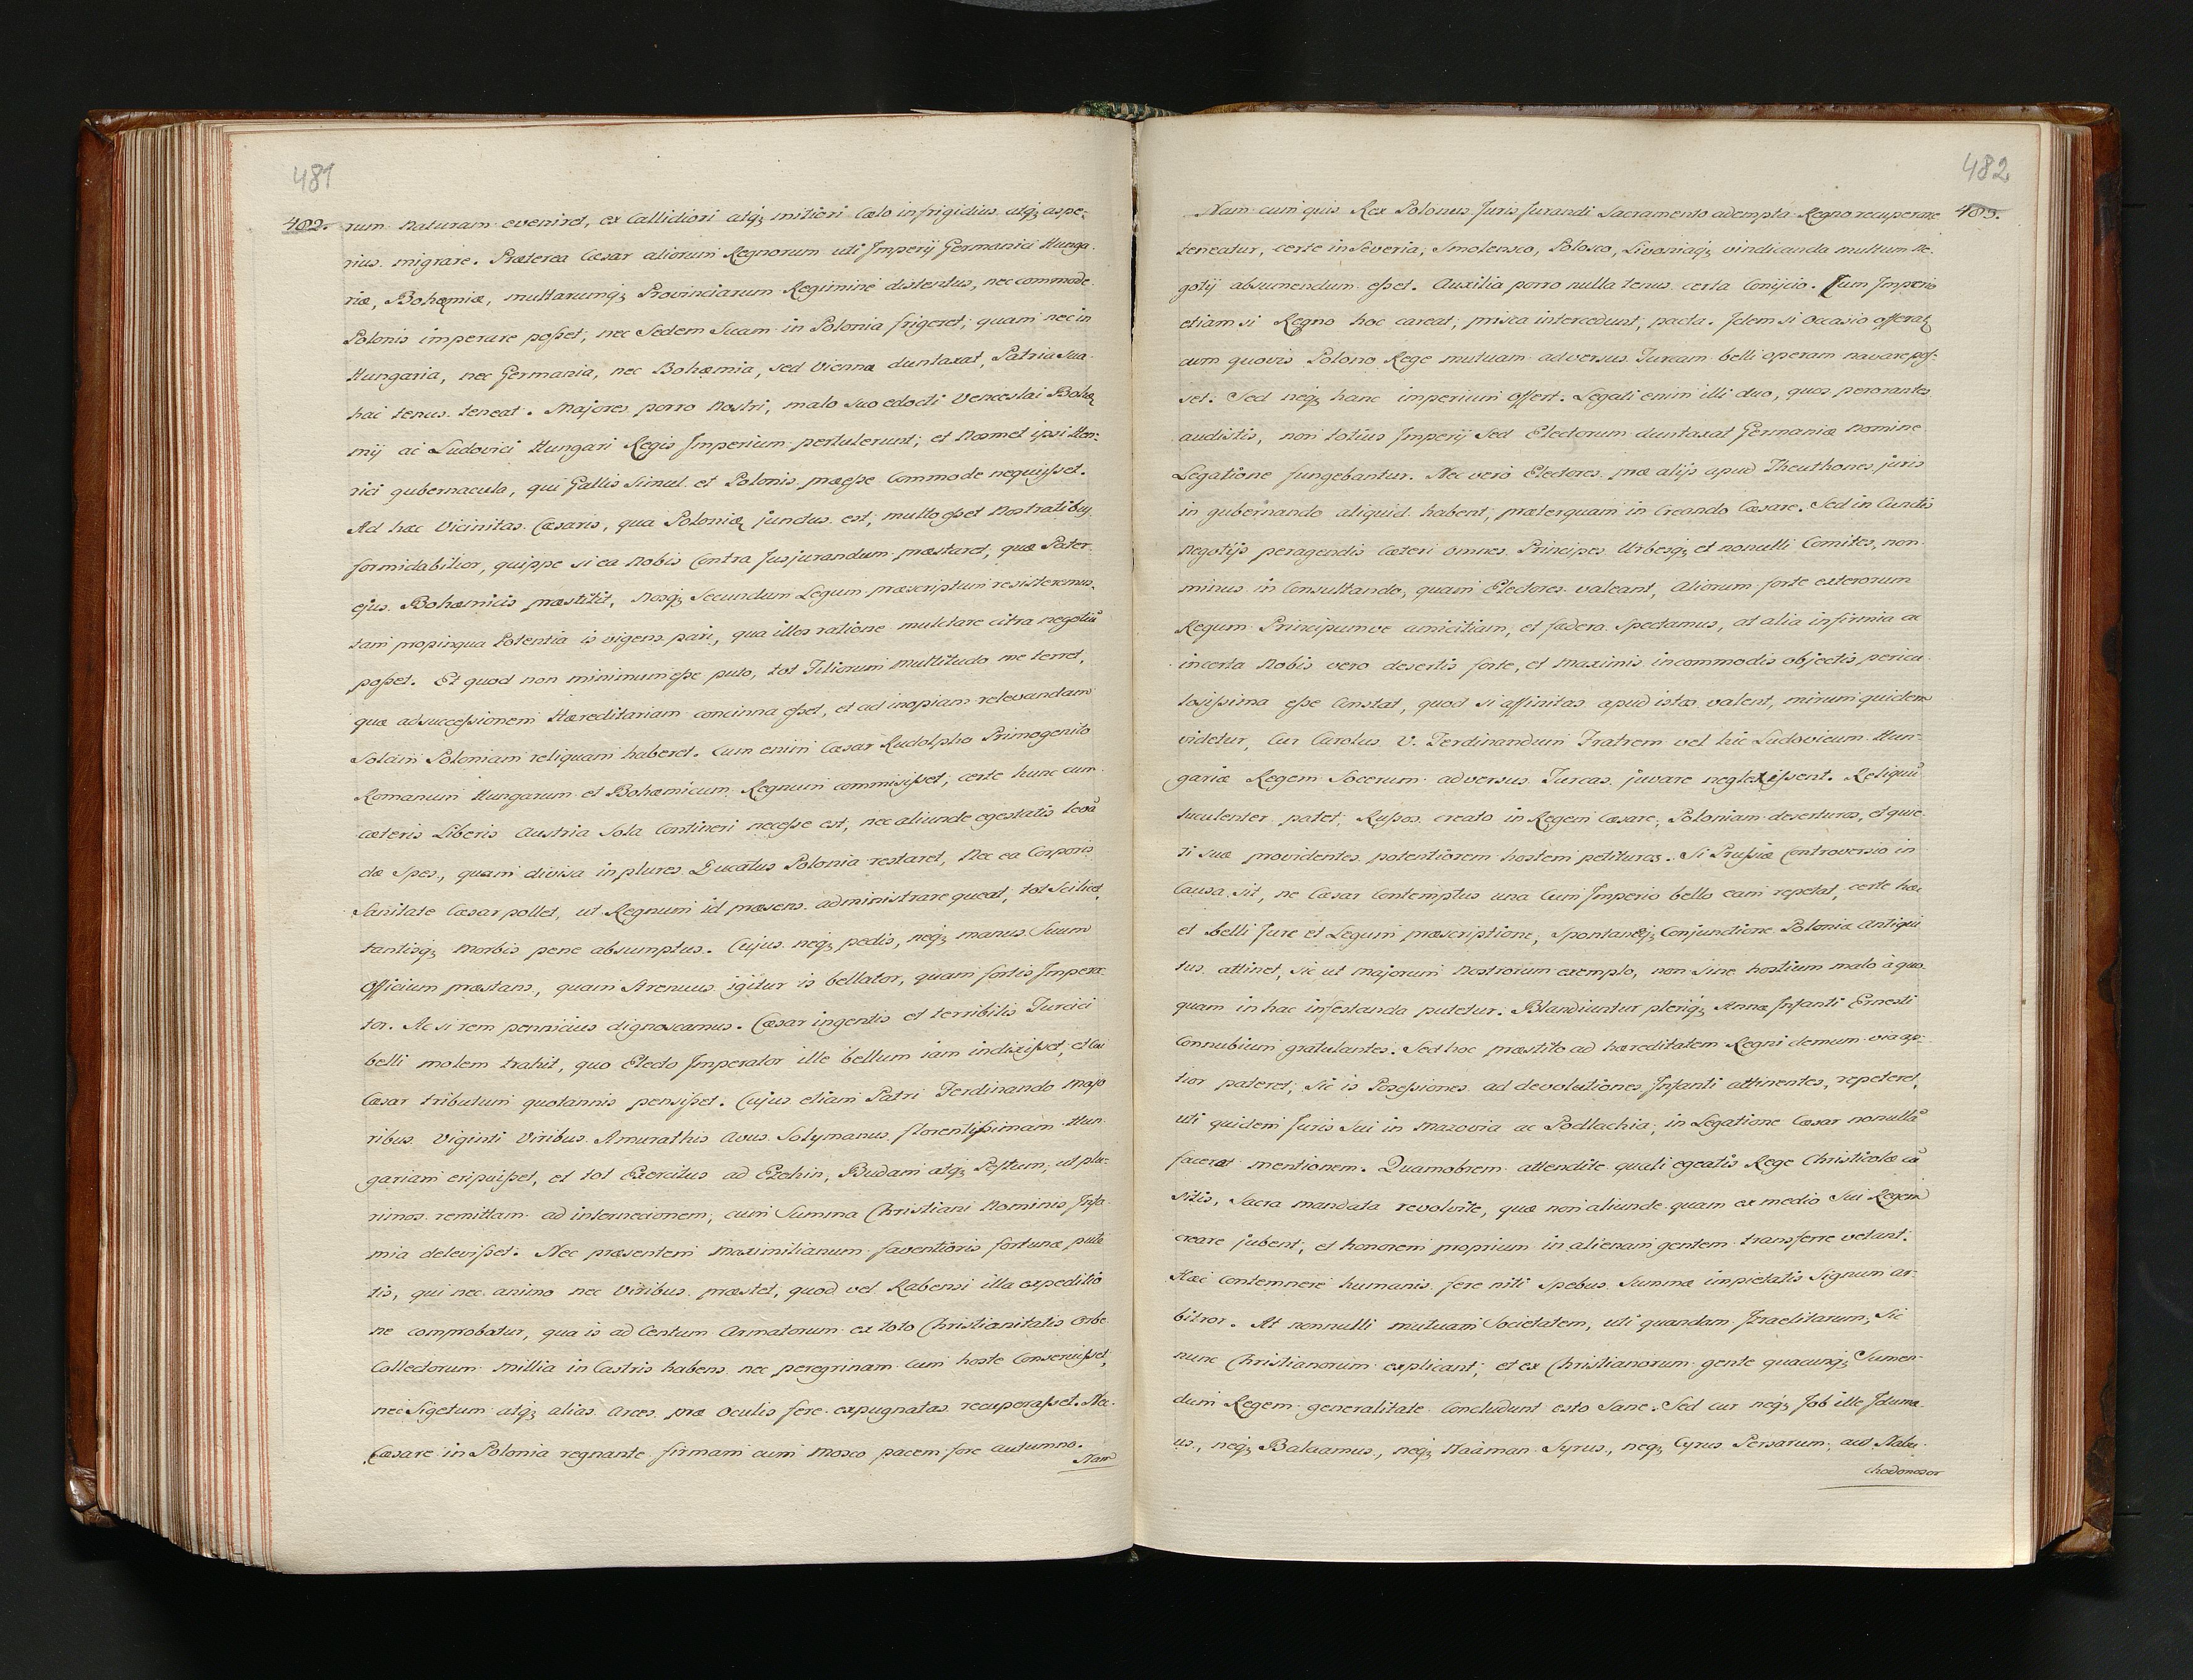 481
482. rum naturam eveniret, ex Callidiori atq; mitiori Cælo in frigidius atq; aspe-
rius migrare. Præterea Cæsar aliorum Regnorum uti Imperij Germanici Hunga-
riæ, Bohæmiæ, multarumq; Provinciarum Regimine distentus, nec commode
Polonis imperare posset, nec Sedem Suam in Polonia frigeret; quam nec in
Hungaria, nec Germania, nec Bohæmia, sed Viennæ duntaxat, Patria Sua
hac tenus teneat. Majores porro Nostri, malo suo edocti Venceslai Bohæ
mij ac Ludovici Hungari Regis Imperium pertulerunt; et Nosmet ipsi Hen-
rici gubernacula, qui Gallis Simul et Polonis præesse Commode nequisset.
Ad hæc Vicinitas Cæsaris, qua Poloniæ junctus est, multo esset Nostratibus
formidabilior, quippe si ea Nobis Contra Jusjurandum præstaret, quæ Pater
ejus Bohæmicis præstitit, Nosq; Secundum Legum præscriptum resisteremus,
tam propinqua Potentia is vigens pari, qua illos ratione mulctare citra negotiũ
posset. Et quod non minimum esse puto, tot Filiorum multitudo me terret,
quæ ad successionem Hæreditariam concinna esset, et ad inopiam relevandam
Solam Poloniam reliquam haberet. Cum enim Cæsar Rudolpho Primogenito
Romanum Hungarum et Bohæmicum Regnum commisisset; certe hunc cum
cæteris Liberis Austria Sola Contineri necesse est, nec aliunde egestatis levã
dæ Spes, quam divisa in plures Ducatus Polonia restaret, Nec ea Corporis
Sanitate Cæsar pollet, ut Regnum id præsens administrare queat, tot Scilicet,
tantisq; Morbis pene absumptus. Cujus neq; pedis, neq; manus Suum
Officium præstans, quam Strenuus igitur is bellator, quam fortis Impera-
tor. Ac si rem pennicius dignoscamus. Cæsar ingentis et terribilis Turcici
belli molem trahit, quo Electo Imperator ille bellum iam indixisset, et cui
Cæsar tributum quotannis pensisset. Cujus etiam Patri Ferdinando Majo
ribus Viginti Viribus Amurathis Avus Solymanus florentissimam Hun-
gariam eripuisset, et tot Exercitus ad Ezehin, Budam atq; Pestum, ut plu-
rimos remittam ad internecionem, cum Summa Christiani Nominis Infa-
mia delevisset. Nec præsentem Maximilianum faventioris fortunæ puta
tis, qui nec animo nec Viribus præstet, quod vel Rabensi illa expeditio
ne comprobatur, qua is ad Centum Armatorum ex toto Christianitatis Orbe
Collectorum Millia in Castris habens nec peregrinam Cum hoste Conseruisset,
nec Sigetum atq; alias Arces præ Oculis fere expugnatas recuperasset. Nec
Cæsare in Polonia regnante firmam cum Mosco pacem fore autumno.
Nam
482
Nam cum quis Rex Polonus Juris Jurandi Sacramento adempta Regno recuperare 483.
teneatur, certe in Severia, Smolensco, Polosco, Livoniaq; vindicanda multum Ne-
gotij absumendum esset. Auxilia porro nulla tenus certa Conijcio. Cum Imperio
etiam si Regno hoc careat, prisca intercedunt, pacta. Idem si occasio offerat
cum quovis Polono Rege mutuam adversus Turcam belli operam navare pos-
set. Sed neq; hanc imperium offert. Legati enim illi duo, quos perorantes
audistis, non totius Imperij Sed Electorum duntaxat Germaniæ Nomine
Legatione fungebantur. Nec vero Electores præ alijs apud Theuthones juris
in gubernando aliquid habent, præterquam in Creando Cæsare. Sed in Cunctis
Negotijs peragendis Cæteri omnes Principes Urbesq; et nonulli Comites, non
minus in Consultando, quam Electores valeant, Aliorum forte exterorum
Regum Principumve amicitiam, et fædera Spectamus, at alia infirmia ac
incerta Nobis vero desertis forte, et Maximis incommodis objectis pericu
losissima esse Constat, quod si affinitas apud istos valent, mirum quidem
videtur, Cur Carolus V. Ferdinandum Fratrem vel hic Ludovicum Hun-
gariæ Regem Socerum adversus Turcas juvare neglexissent. Reliquũ
luculenter patet, Russos creato in Regem Cæsare, Poloniam deserturos, et quie
ti suæ providentes potentiorem hostem petituros. Si Prussiæ Controversio in
Causa sit, ne Cæsar Contemptus una Cum Imperio bello eam repetat, certe hæc
et belli Jure et Legum præscriptione, Spontaneaq; Conjunctione Poloniæ Antiqui
tus attinet, sic ut Majorum Nostrorum exemplo, non sine hostium malo à quo-
quam in hac infestanda putetur. Blandiuntur pleriq; Annæ Infanti Ernesti
Connubium gratulantes. Sed hoc præstito ad hæreditatem Regni demum via ap-
tior pateret, sic is Posessiones ad devolutiones Infanti attinentes, repeteret,
uti quidem Juris Sui in Mazovia ac Podlachia, in Legatione Cæsar nonullã
facerat mentionem. Quamobrem attendite quali egeatis Rege Christicolæ cũ
sitis, Sacra mandata revolvite, quæ non aliunde quam ex medio Sui Regem
creare jubent, et honorem proprium in alienam gentem transferre vetant.
Hæc Contemnere humanis fere niti Spebus Summæ impietatis Signum ar-
bitror. At nonnulli mutuam Societatem, uti quandam Israelitarum, Sic
nunc Christianorum explicant; et ex Christianorum gente quacunq; Sumen-
dum Regem generalitate Concludunt esto Sane. Sed cur neq; Job ille Idumæ
us, neq; Balaamus, neq; Naàman Syrus, neq; Cyrus Persarum, aut Nabu-
chodonosor